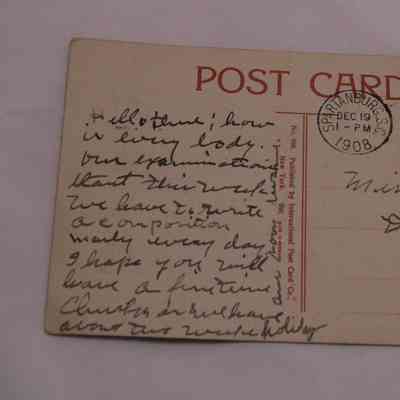 POST CARD
SPARTANBURG, S.C.
DEC 19
1 - PM
1908
Hello there; how
is every body.
our examinations
start this week
we have to write
a composition
nearly every day
I hope you will
have a fine time
Christmas we have
about two weeks holiday
our
No. Published by International Post Card Co.,
New York.
Mi